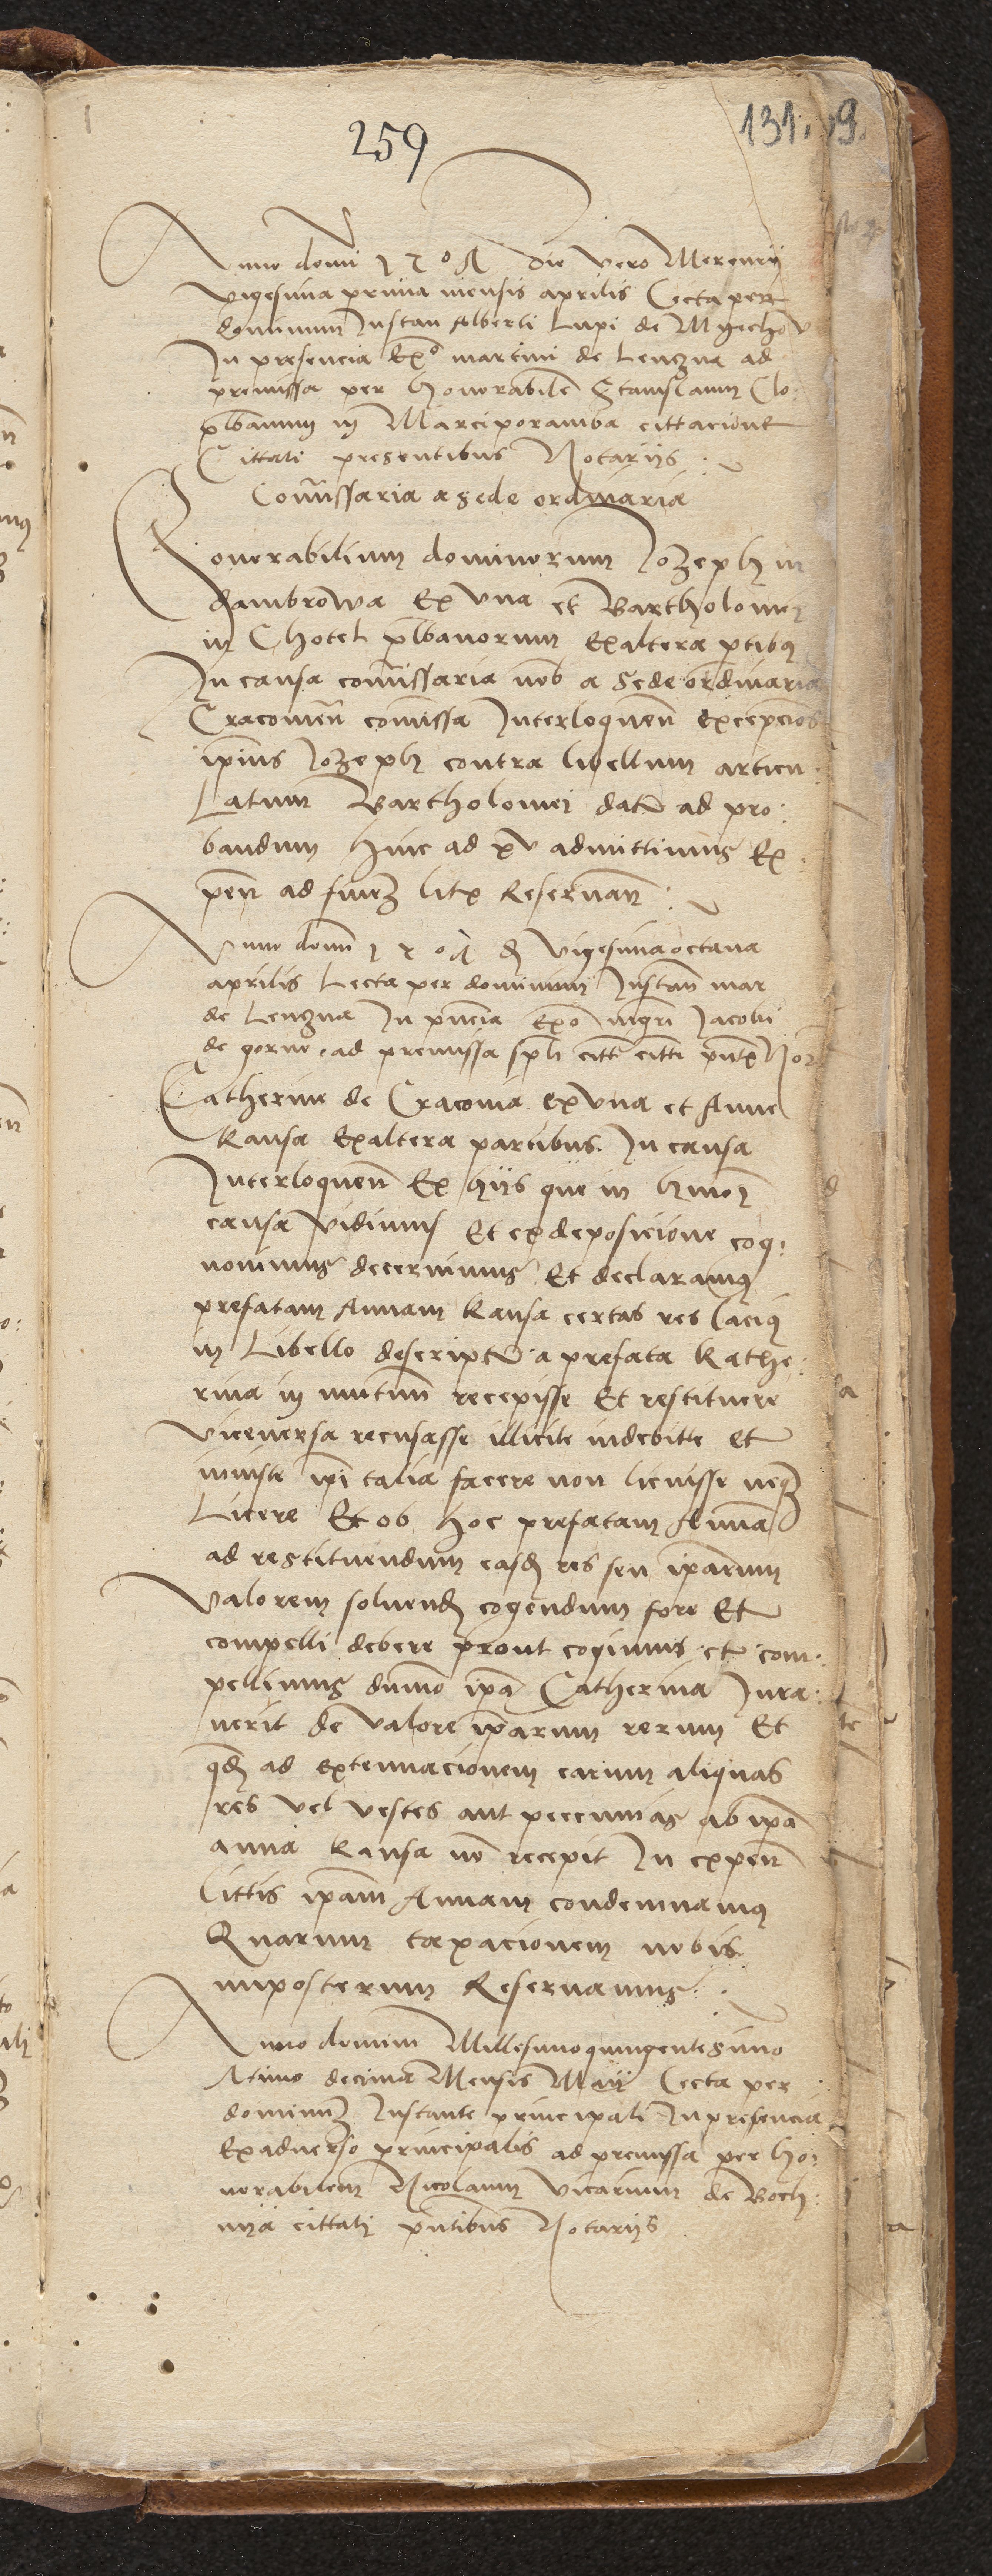 259
131.
9.
Anno domi 1507 die vero Mercurij
vigesima prima mensis aprilis Lecta per
dominum Instan Alberti Lupi de Myechow
In presencia Exo martini de Lengzna ad
premissa per honorabile Stanislaum Clo:
plbanum in Marciporamba cittacione
Cittati presentibus Notarijs
Comissaria a sede ordinaria
Honorabilium dominorum Iozeph in
dambrowa Ex una et Bartholomei
in Chotel plbanorum Exaltera ptibus
In causa comissaria nob a Sede ordinaria
Cracovien comissa Interloquen excepcios
ipius Iozeph contra libellum articu:
Latum Bartholomei datu ad pro:
bandum hinc ad xv admittimus Ex:
pen ad finez litis Reservan:
Anno domi 1507 d vigesimaoctava
aprilis Lecta per dominum Instan mar
de Lengzna In pncia Exo mgri Iacobi
de gorno ad premissa sph citt citti pnt Not
Catherine de Cracovia ex una et Anne
kansa Exaltera partibus In causa
Interloquen Ex hijs que in hmoi
causa vidimus Et ex deposicione cog:
novimus decernimus Et declaramus
prefatam Annam kansa certas res lacius
in Libello descriptu a prefata Kathe:
rina in mutuum recepisse Et restituere
viceversa recusasse illicite indebitte et
iniuste ipi talia facere non licuisse neq
Licere Et ob hoc prefatam Annam
ad restituendum easd res seu iparum
valorem solvend cogendum fore Et
compelli debere prout cogimus et com:
pellimus dumo ipa Catherina Iura:
verit de valore iparum rerum Et
qd ad extenuacionem earum aliquas
res vel vestes aut peccunias ab ipa
anna kansa no recepit In expen
littis ipam Annam condemnamus
Quarum taxacionem nobis
imposterum Reservamus
Anno domini Millesimoquingentesimo
7timo decima Mensis Maij Lecta per
dominuz Instante principali In presencia
Exadverso principalis ad premyssa per ho:
norabilem Nicolaum vicarium de Boch:
nija cittati pntibus Notarijs